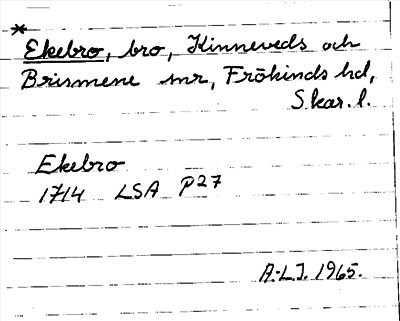 *
Ekebro, bro, Kinneveds och
Brismene snr, Frökinds hd,
Skar. l.
Ekebro
1714 LSA P27
A.L.J. 1965.